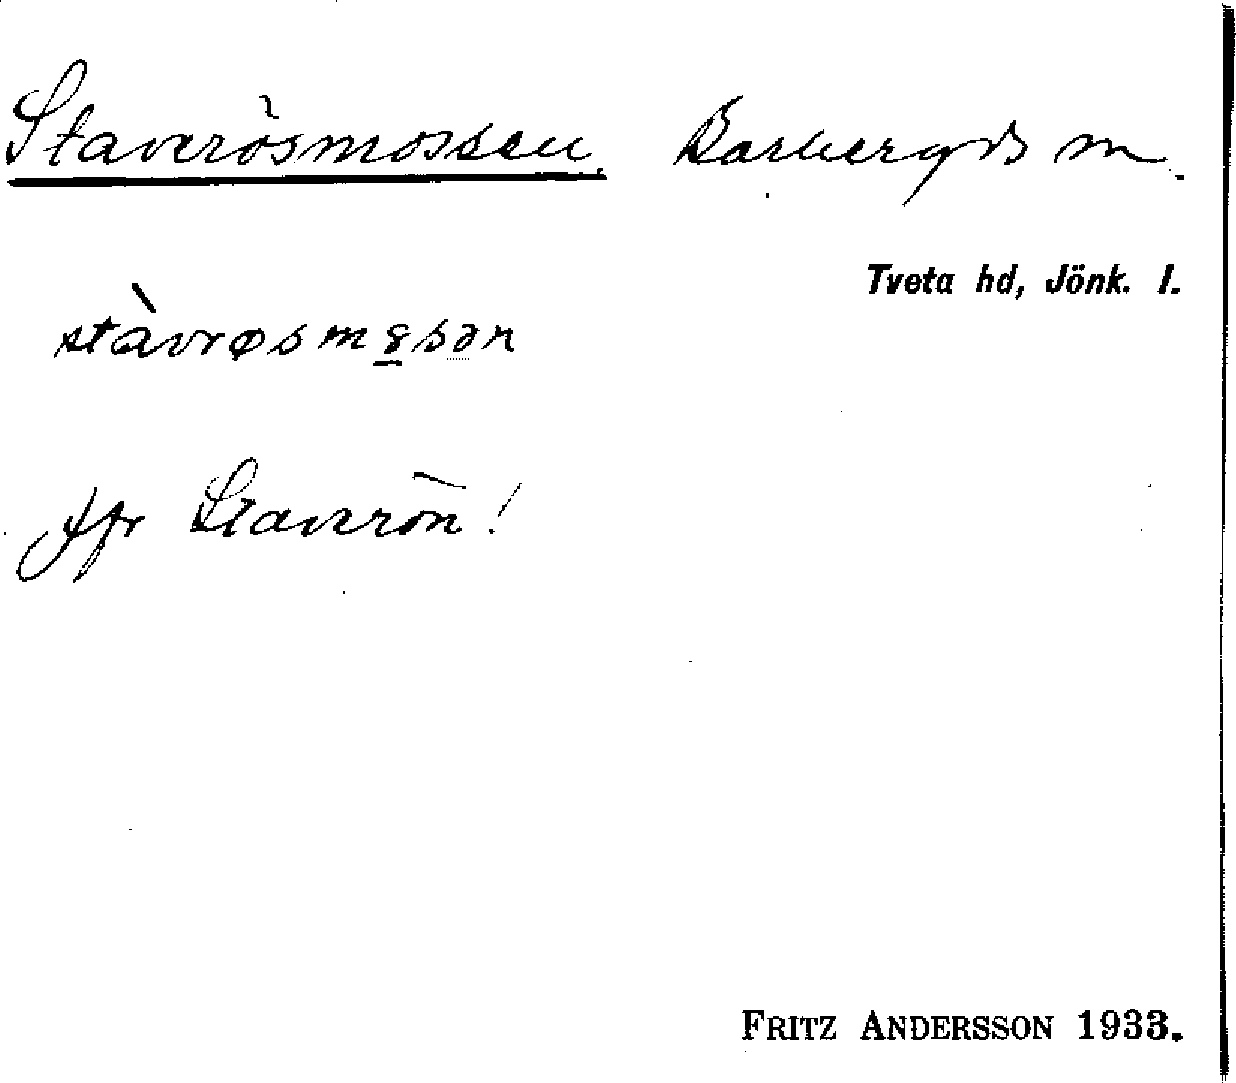 Staverösmossen. Barkeryds sn.
Tveta hd, Jönk. l.
stàvrøsmɞsən
Jfr Staverön!
FRITZ ANDERSSON 1933.